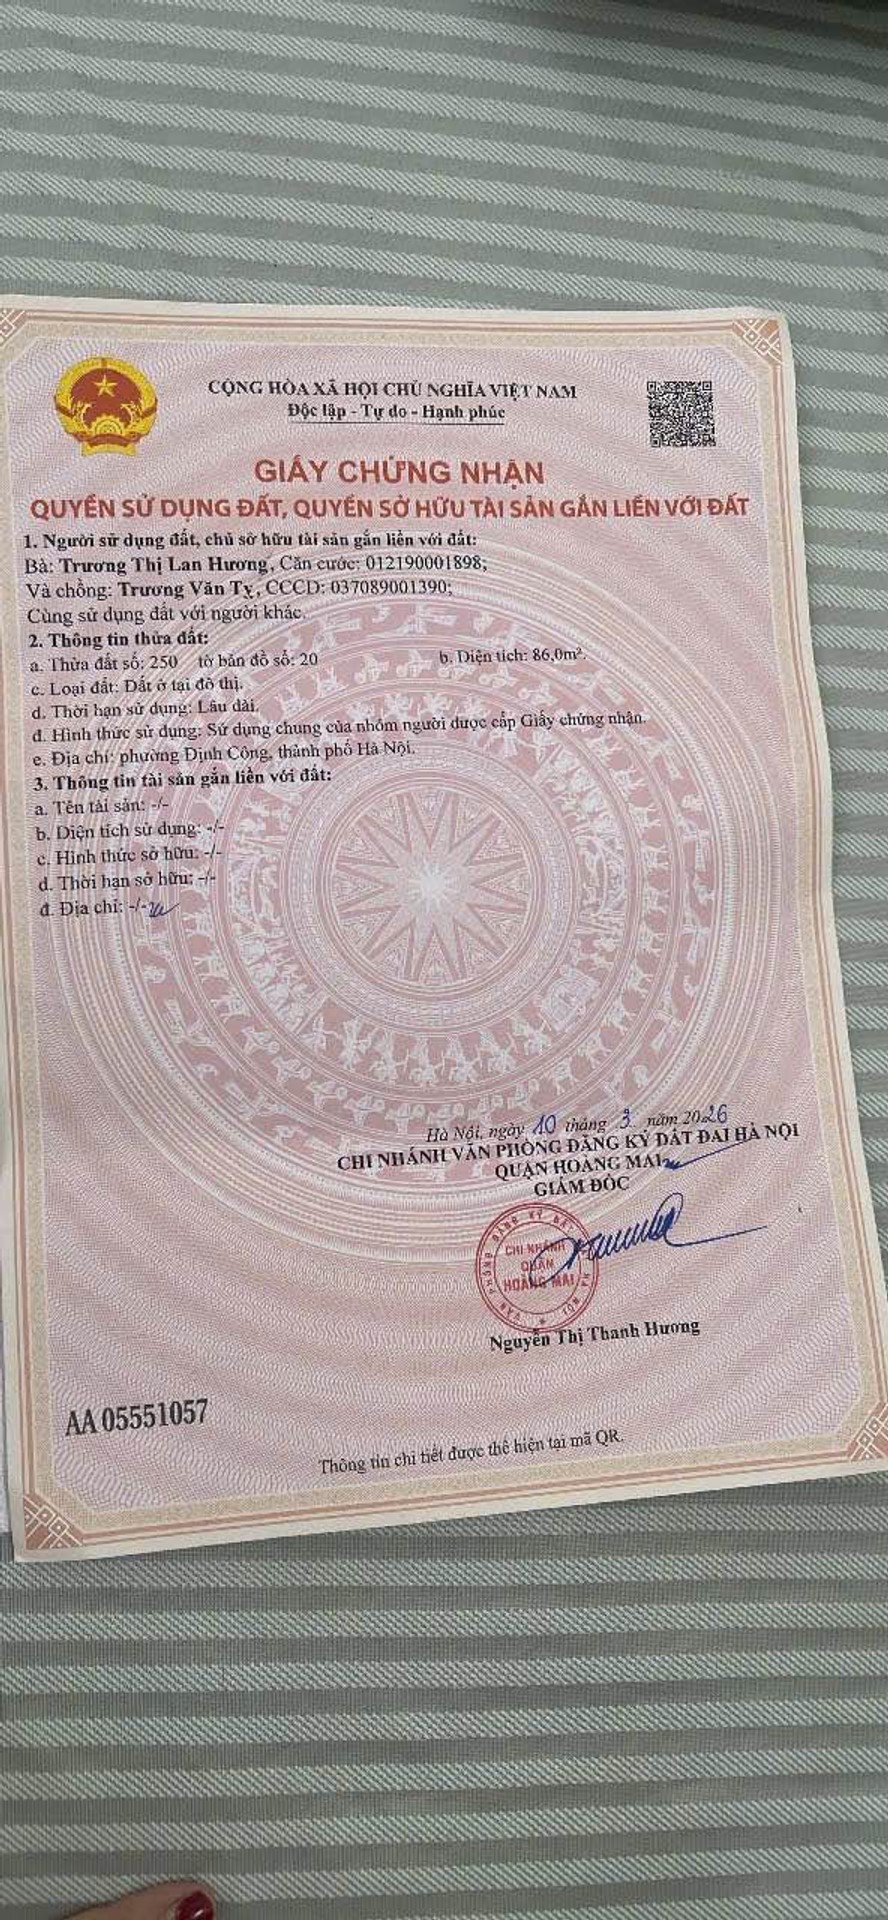 CỘNG HÒA XÃ HỘI CHỦ NGHĨA VIỆT NAM
Độc lập - Tự do - Hạnh phúc
GIẤY CHỨNG NHẬN
QUYỀN SỬ DỤNG ĐẤT, QUYỀN SỞ HỮU TÀI SẢN GẮN LIỀN VỚI ĐẤT
1. Người sử dụng đất, chủ sở hữu tài sản gắn liền với đất:
Bà: Trương Thị Lan Hương, Căn cước: 012190001898;
Và chồng: Trương Văn Tỵ, CCCD: 037089001390;
Cùng sử dụng đất với người khác.
2. Thông tin thửa đất:
a. Thửa đất số: 250 tờ bản đồ số: 20 b. Diện tích: 86,0m².
c. Loại đất: Đất ở tại đô thị.
d. Thời hạn sử dụng: Lâu dài.
đ. Hình thức sử dụng: Sử dụng chung của nhóm người được cấp Giấy chứng nhận.
e. Địa chỉ: phường Định Công, thành phố Hà Nội.
3. Thông tin tài sản gắn liền với đất:
a. Tên tài sản: -/-
b. Diện tích sử dụng: -/-
c. Hình thức sở hữu: -/-
d. Thời hạn sở hữu: -/-
đ. Địa chỉ: -/-
Hà Nội, ngày 10 tháng 3 năm 2026
CHI NHÁNH VĂN PHÒNG ĐĂNG KÝ ĐẤT ĐAI HÀ NỘI
QUẬN HOÀNG MAI
GIÁM ĐỐC
VĂN PHÒNG ĐĂNG KÝ ĐẤT
HÀ NỘI
CHI NHÁNH
QUẬN
HOÀNG MAI
Nguyễn Thị Thanh Hương
AA 05551057
Thông tin chi tiết được thể hiện tại mã QR.